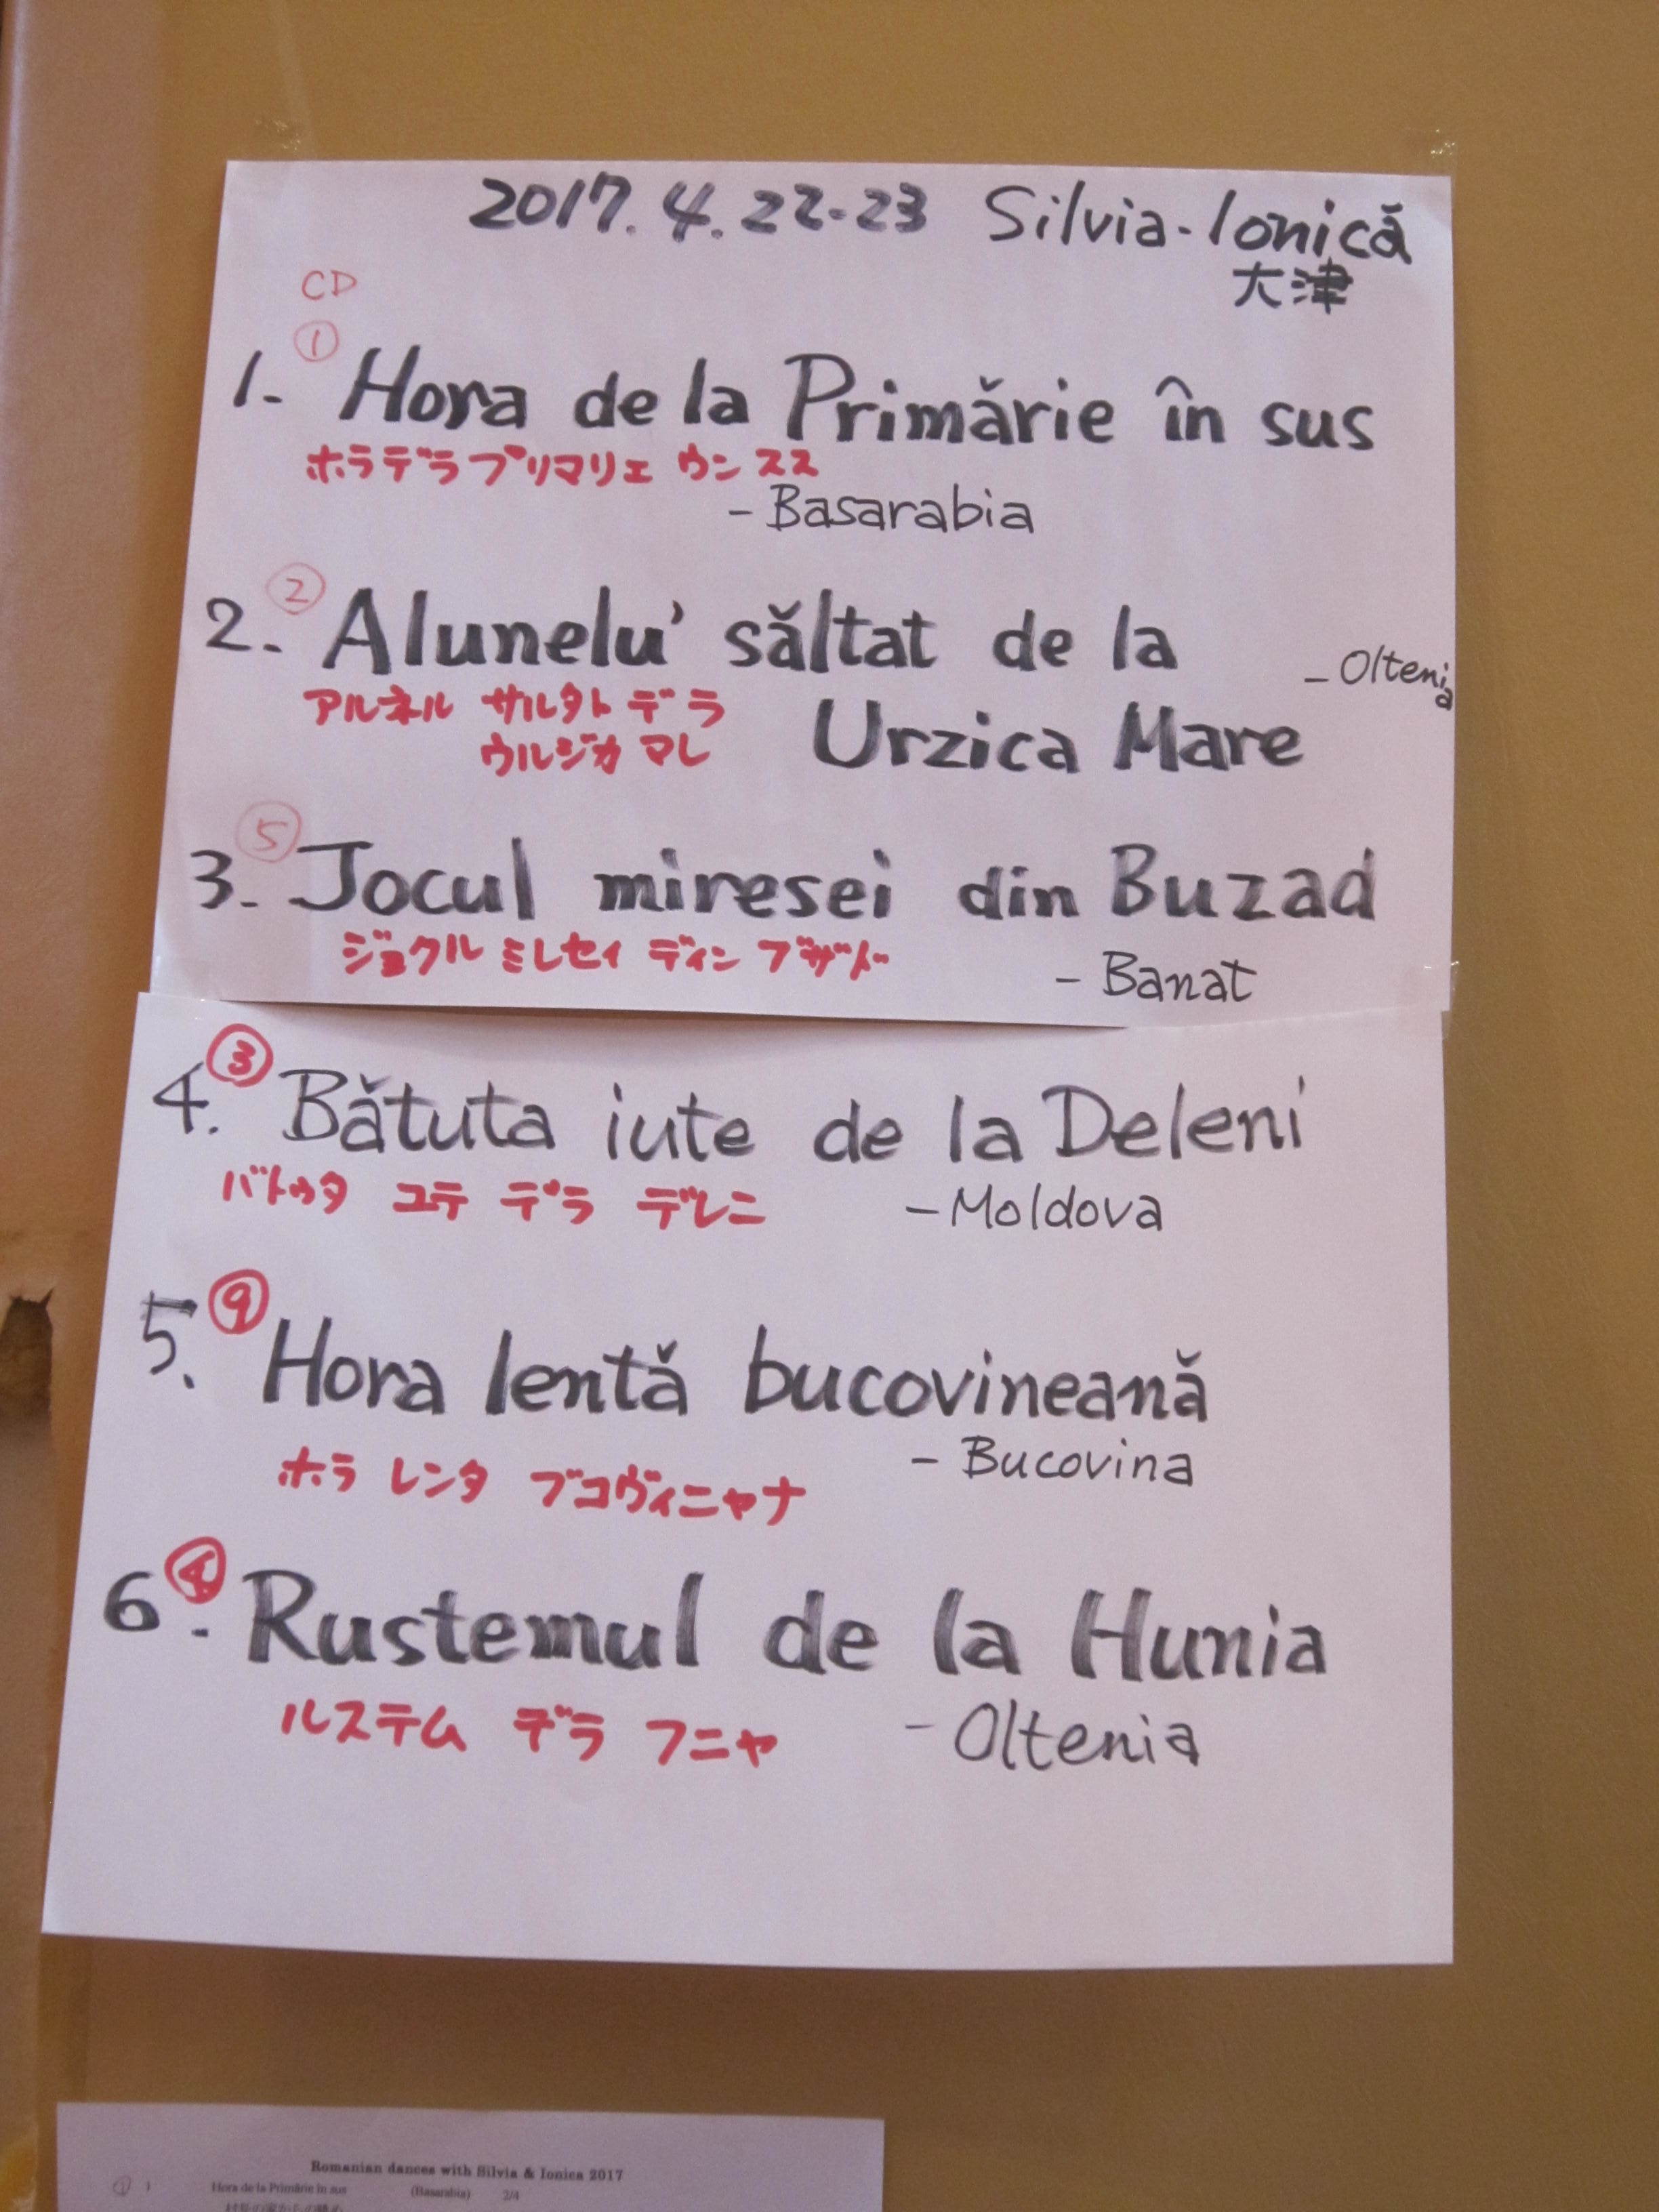 2017.4.22-23 Silvia-Ionică
大津
CD
①
1. Hora de la Primărie în sus
ホラ デラ プリマリェ ウン スス
- Basarabia
②
2. Alunelu' săltat de la
- Oltenia
アルネル サルタト デ ラ
ウルジカ マレ
Urzica Mare
⑤
3. Jocul miresei din Buzad
ジョクル ミレセイ ディン ブザド
- Banat
③
4. Bătuta iute de la Deleni
バトゥタ ユテ デ ラ デレニ
- Moldova
⑨
5. Hora lentă bucovineană
- Bucovina
ホラ レンタ ブコヴィニャナ
④
6. Rustemul de la Hunia
ルステム デ ラ フニヤ
- Oltenia
Romanian dances with Silvia & Ionica 2017
① 1 Hora de la Primărie în sus (Basarabia) 2/4